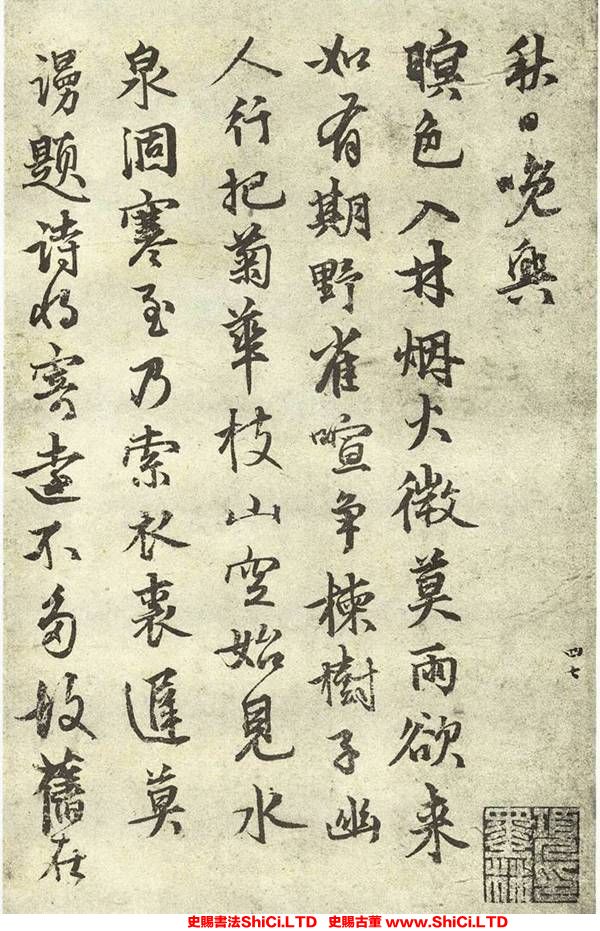 秋日晚興
暝色入林烟火微莫雨欲来
如有期野雀喧争楝樹子幽
人行把菊華枝山空始見水
泉涸寒至乃索衣裘遲莫
謾题詩将寄遠不多故舊在
四七
史賜書法ShiCi.LTD 史賜古董 www.ShiCi.LTD